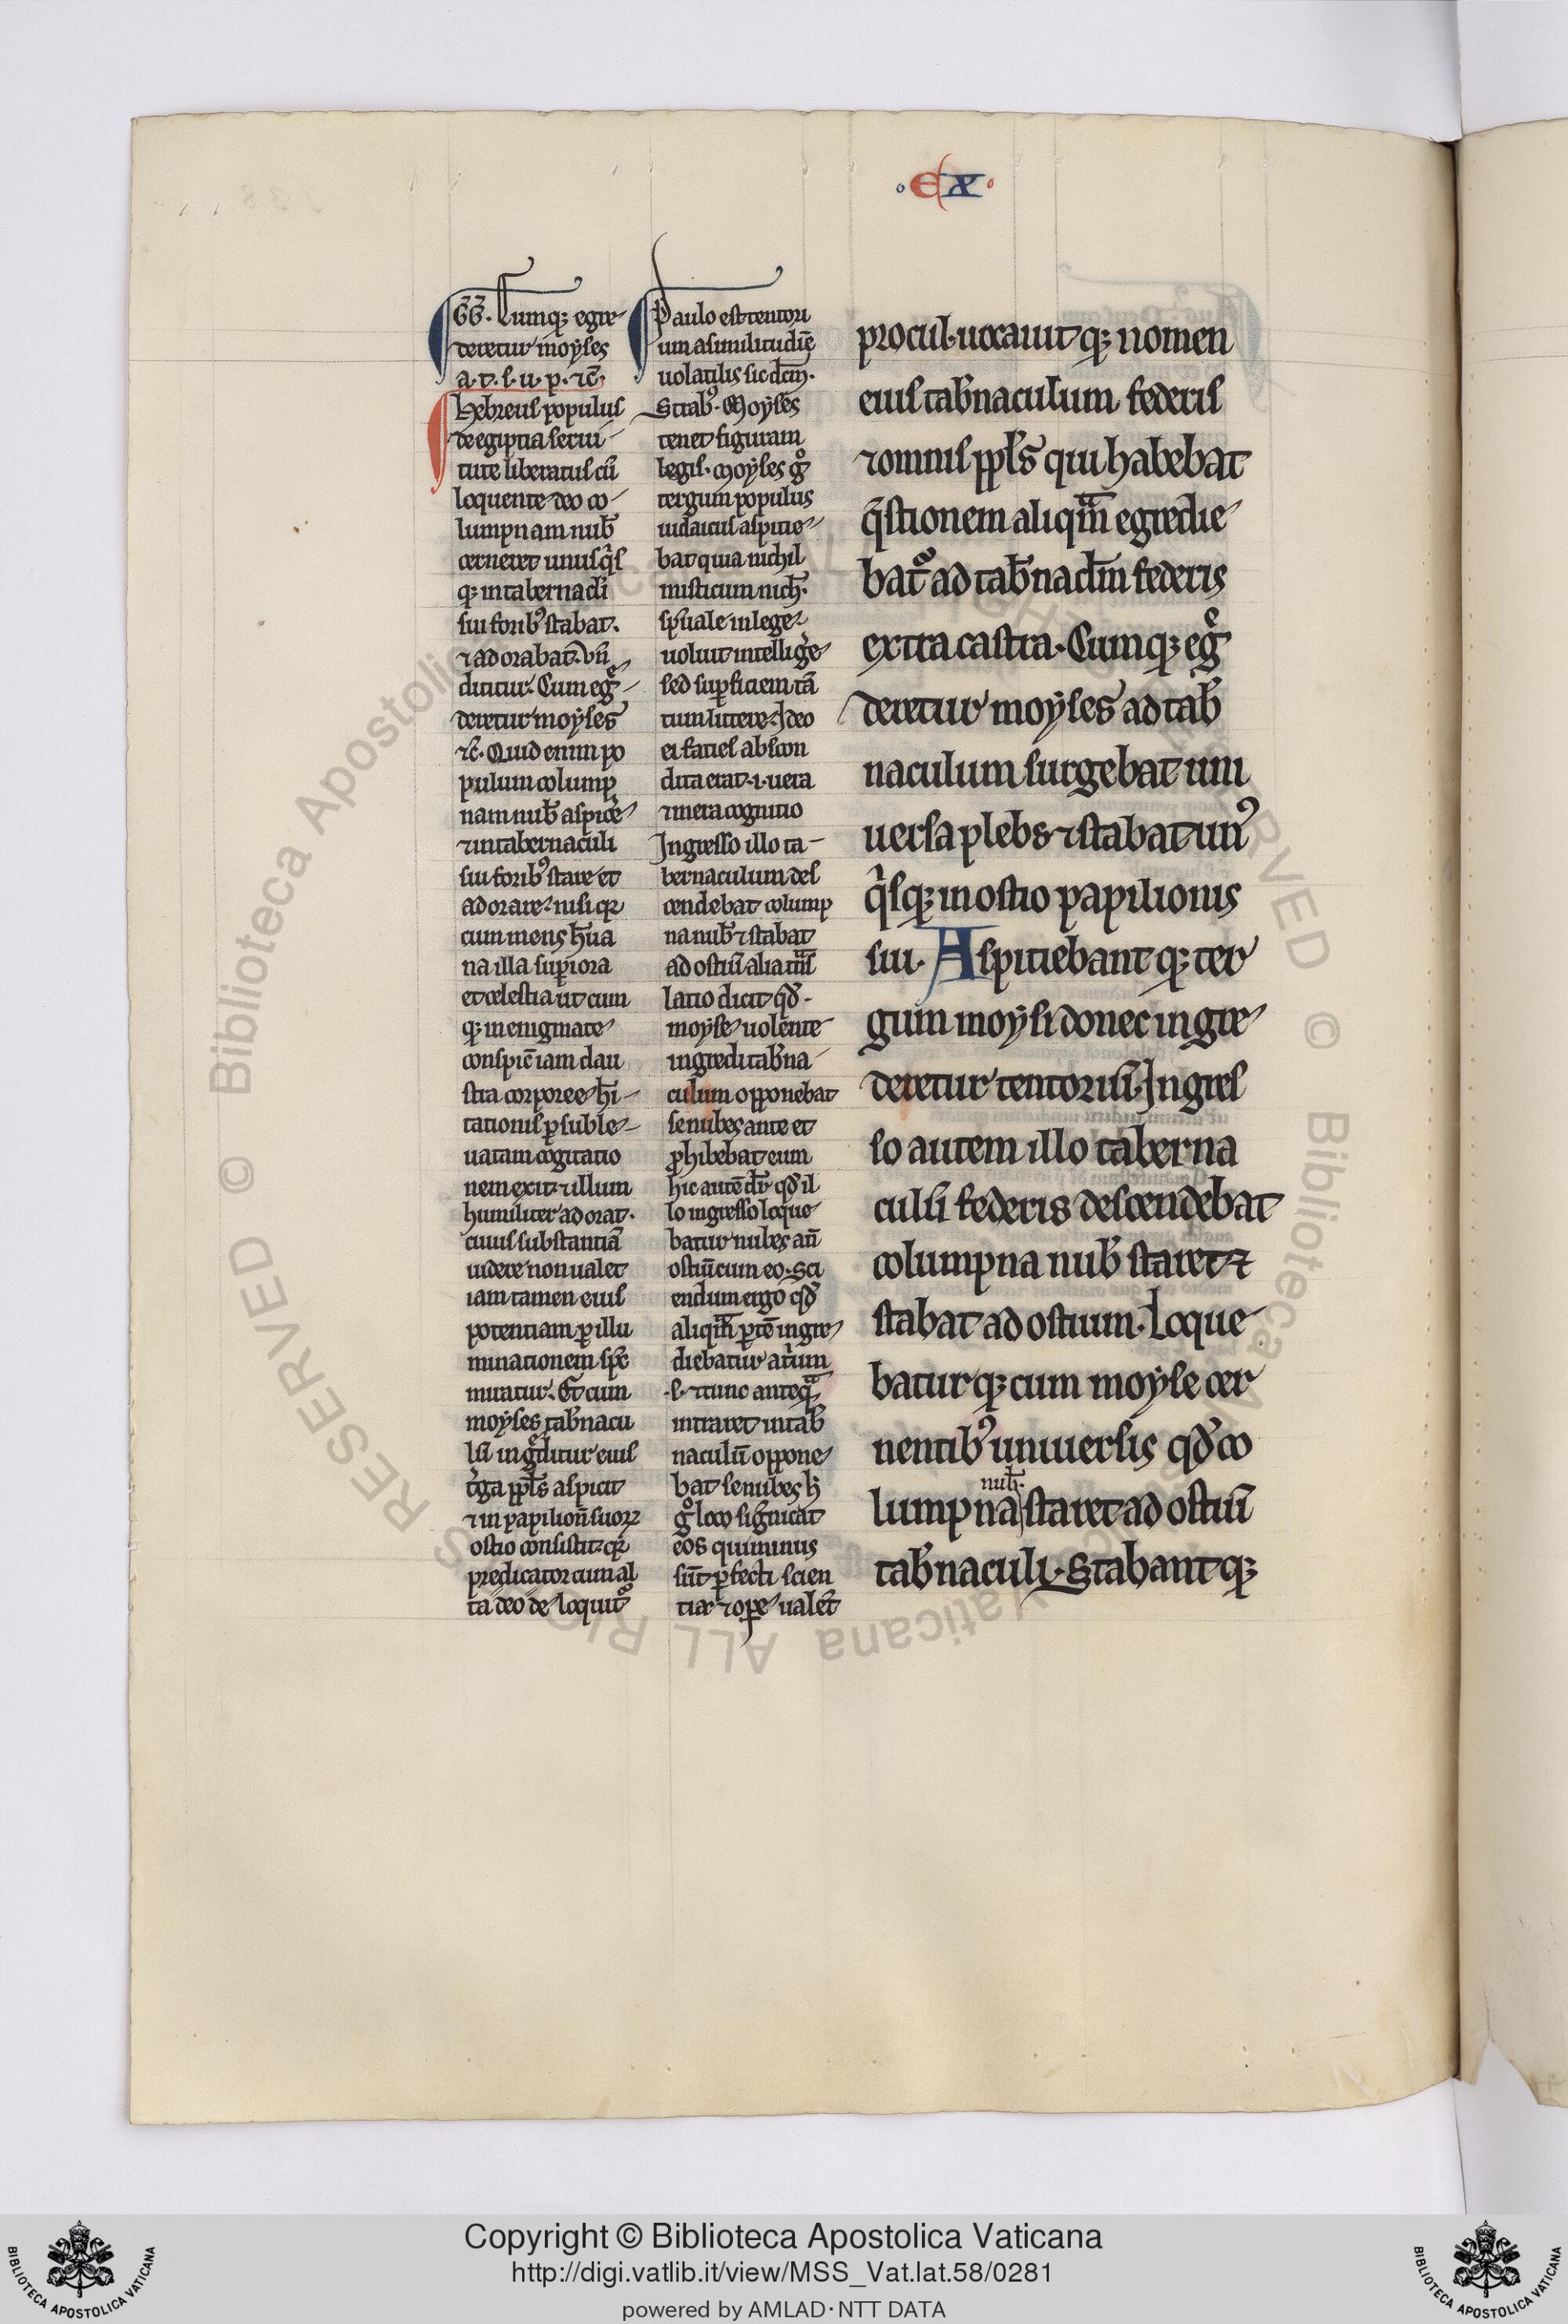 ·EX·
GG. Cumq; egre
deretur moyses
a. t. s. u. p. ⁊c̄.
Hebreus populus
de egiptia serui
tute liberatus cū
loquente deo co
lumpnam nub̄
cerneret unusq̇s
q; in tabernacl̄i
sui forib⁹ stabat.
⁊ adorabat. vn̄
dicitur. Cum eg̊
deretur moyses
⁊c̄. Quid enim po
pulum colump
nam nub̄ aspic̄e
⁊ in tabernaculi
sui forib⁹ stare et
adorare. nisi qꝛ
cum mens hūa
na illa superiora
et celestia ut cum
q; in enigmate
conspic̄ iam clau
stra corporee hī
tationis ꝑ suble
uatam cogitatio
nem exit ⁊ illum
humiliter adorat.
cuius substantiā
uidere non ualet
iam tamen eius
potentiam ꝑ illu
minationem sp̄c
miratur. Et cum
moyses tab̄nacu
lū ingditur eius
t̄ga ppl̄s aspicit
⁊ in papilion̄ suoꝝ
ostio consistit qꝛ
predicator cum al
ta deo de loquit᷑
Paulo est tentori
um a similitudiē
uolatilis sic dc̄m.
Strab⁹. Moyses
tenet figuram
legis. moyses g̊
tergum populus
iudaicus aspicie
bat quia nichil
misticum nich̄.
sp̄uale in lege
uoluit intelliḡe
sed suꝑficiem tā
tum littere. Ideo
ei facies abscon
dita erat .i. uera
⁊ mera cognitio
Ingresso illo ta
bernaculum des
cendebat colump
na nub̄ ⁊ stabat
ad ostiū alia trās
latio dicit qd̄.
moyse uolente
ingredi tab̄na
culum opponebat
se nubes ante et
ꝓhibebat eum
hic autē dr̄ qd̄ il
lo ingresso loque
batur nubes an̄
ostiū cum eo. Sci
endum ergo qd̄
aliqn̄ ꝑ tē ingre
diebatur at̄um
.s. ⁊ tunc anteq̄
intraret in tab̄
naculū oppone
bat se nubes h̄
g̊ loco signicat
eos qui minus
sūt ꝑfecti scien
tia ⁊ oꝑe ualēt
procul. uocauitq; nomen
eius tab̄naculum federis
⁊ omnis ppl̄s qui habebat
q̄stionem aliqm̄ egredie
bat᷑ ad tab̄nacl̄m federis
extra castra. Cumq; eg̊
deretur moyses ad tab̄
naculum surgebat uni
uersa plebs ⁊ stabat un⁹
q̇sq; in ostio papilionis
sui. Aspitiebantq; ter
gum moysi donec ingre
deretur tentoriū. Ingres
so autem illo taberna
culū federis descendebat
columpna nub̄ staret ⁊
stabat ad ostium. Loque
baturq; cum moyse cer
nentib⁹ uniuersis qd̄ co
nub̄.
lumpna staret ad ostiū
tab̄naculi. Stabantq;
Copyright © Biblioteca Apostolica Vaticana
http://digi.vatlib.it/view/MSS_Vat.lat.58/0281
powered by AMLAD · NTT DATA